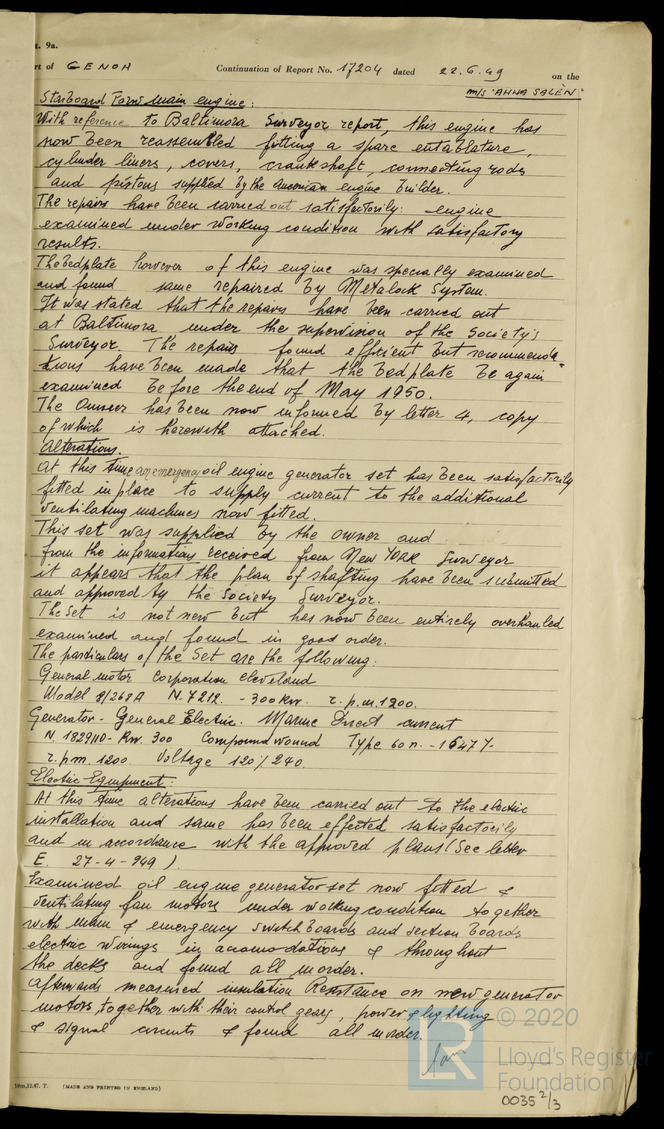 t. 9a.
rt of GENOA Continuation of Report No. 17204 dated 22.6.49 on the
m/s "ANNA SALÈN"
Starboard Forw main engine:
With reference to Baltimora Surveyor report, this engine has
now been reassembled fitting a spare entablature,
cylinder liners, covers, crankshaft, connecting rods
and pistons supplied by the American engine builder.
The repairs have been carried out satisfactorily: engine
examined under working condition with satisfactory
results.
The bedplate however of this engine was specially examined
and found same repaired by Metalock System.
It was stated that the repairs have been carried out
at Baltimora under the supervision of the Society's
Surveyor. The repairs found efficient but recommenda-
tions have been made that the bedplate be again
examined before the end of May 1950.
The Owner has been now informed by letter &, copy
of which is herewith attached.
Alterations.
At this time an emergency oil engine generator set has been satisfactorily
fitted in place to supply current to the additional
ventilating machines now fitted.
This set was supplied by the owner and
from the information received from New York Surveyor
it appears that the plan of shafting have been submitted
and approved by the Society Surveyor.
The Set is not new but has now been entirely overhauled
examined and found in good order.
The particulars of the Set are the following:
General motor corporation Cleveland
Model 8/268A N. 7212. - 300 Kw. r.p.m. 1200.
Generator - General Electric. Marine Direct current
N 1829110 - Kw. 300 Compound wound Type 60 n. - 16477-
r.p.m. 1200 Voltage 120/240.
Electric Equipment:
At this time alterations have been carried out to the electric
installation and same has been effected satisfactorily
and in accordance with the approved plans (See letter
E. 27-4-949)
Examined oil engine generator set now fitted &
ventilating fan motors under working condition together
with main & emergency switchboards and section boards
electric wirings in accomodations & throughout
the decks and found all in order.
Afterwards measured insulation Resistance on new generator
motors, together with their control gears, power & lighting
& signal circuits & found all in order.
LR © 2020
Lloyd's Register
Foundation
10m,12.47. T. (MADE AND PRINTED IN ENGLAND)
0035 2/3